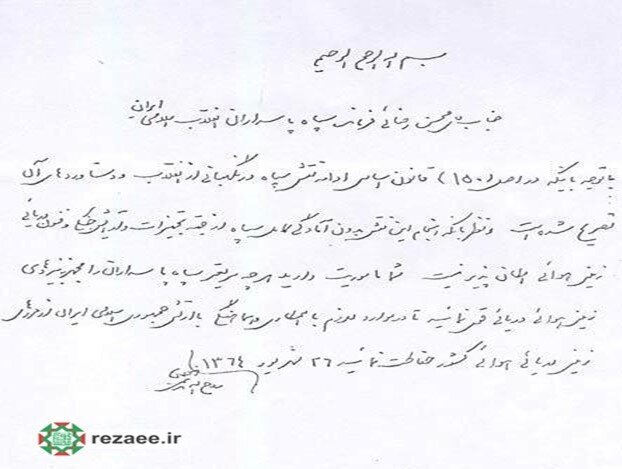 بسم الله الرحمن الرحیم
جناب آقای محسن رضائی فرمانده سپاه پاسداران انقلاب اسلامی ایران
با توجه باینکه در اصل (۱۵۰) قانون اساسی ادامه نقش سپاه در نگهبانی از انقلاب و دستاوردهای آن
تصریح شده است و نظر باینکه انجام این نقش بدون آمادگی کامل سپاه از جهت تجهیزات و فنون دریائی
زمینی هوائی امکان پذیر نیست شما ماموریت دارید هر چه سریعتر سپاه پاسداران را مجهز به نیروهای
زمینی هوائی دریائی قوی نمائید تا در موارد لازم با همکاری و هماهنگی با ارتش جمهوری اسلامی ایران از مرزهای
زمینی دریائی هوائی کشور حفاظت نمائید ۲۶ شهریور ۱۳۶۴
روح الله الموسوی الخمینی
rezaee.ir